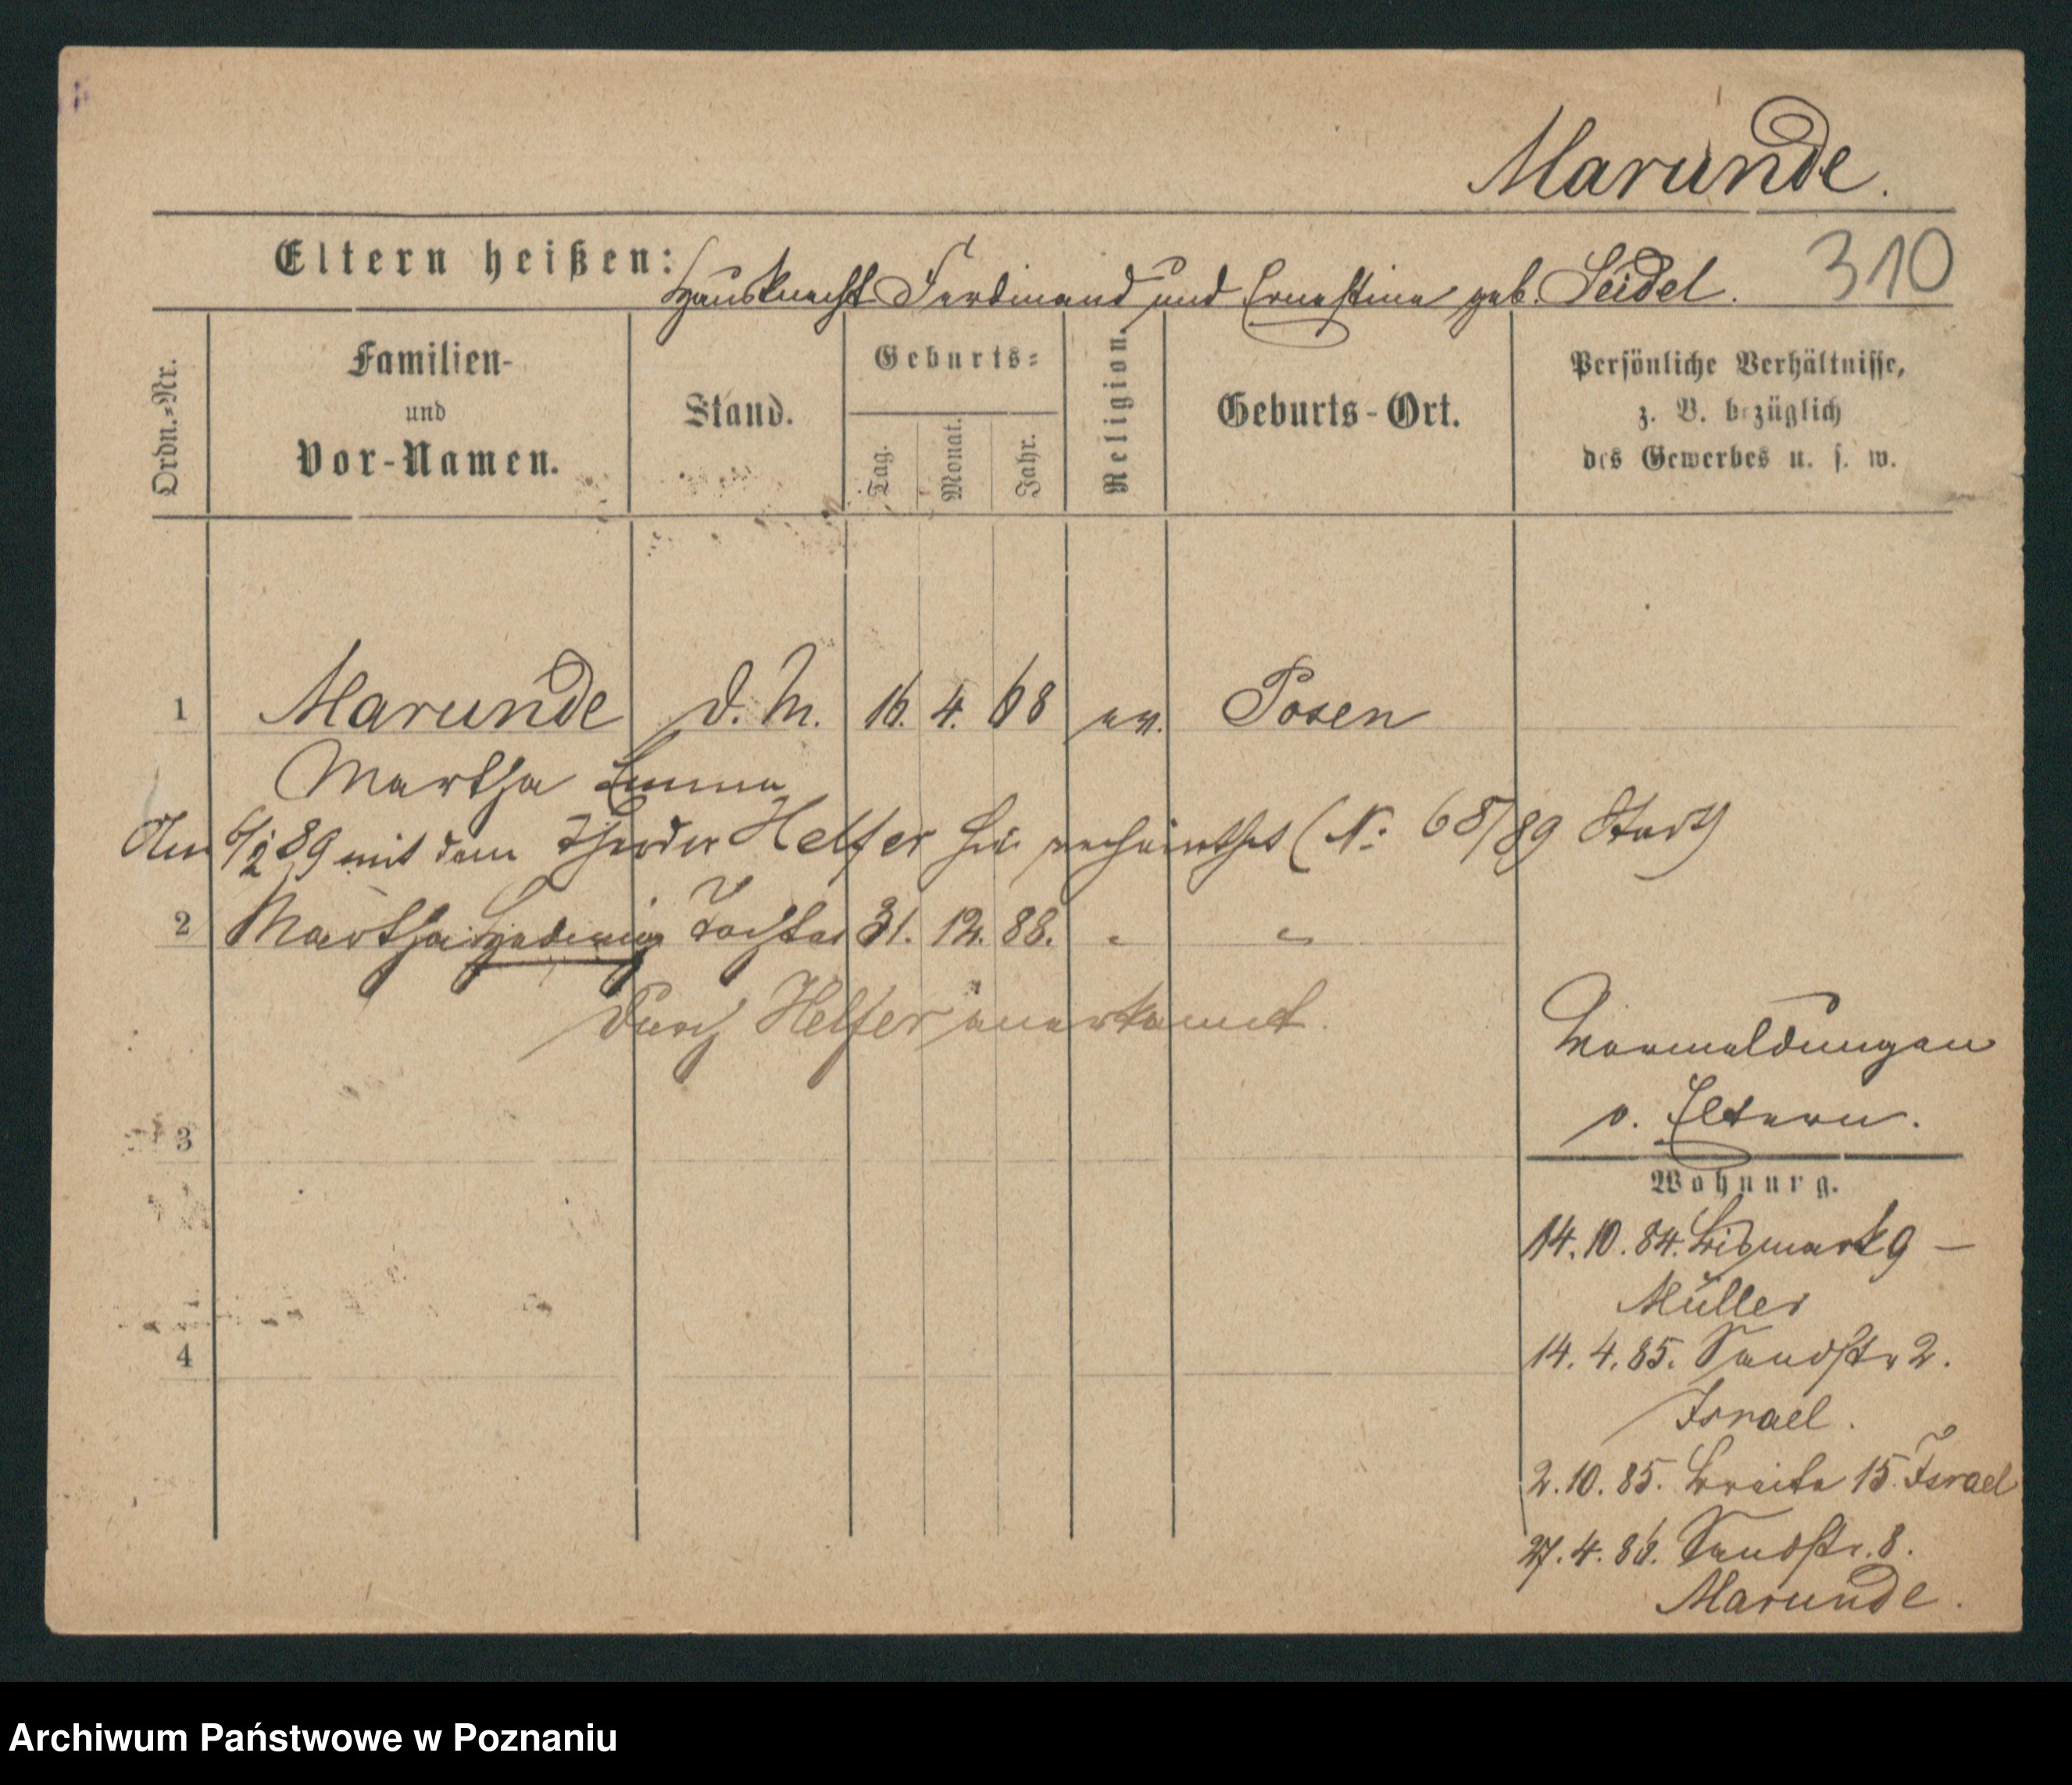 Marunde.
Eltern heißen: Hausknecht Ferdinand und Ernestine geb. Seidel. 310
Ordn.=Nr.
Familien-
und
Vor-Namen.
Stand.
Geburts=
Tag.
Monat.
Jahr.
Religion.
Geburts-Ort.
Persönliche Verhältnisse,
z. B. bezüglich
des Gewerbes u. s. w.
1 Marunde d. M. 16. 4. 68 ev. Posen
Martha Emma
Am 6/2 89 mit dem Theodor Helfer hie verheirathet (N: 68/89 Stdt)
2 Martha Hedwig Tochter 31. 12. 88. " "
Durch Helfer anerkannt.
Vormeldungen
b. Eltern.
3
Wohnung.
14. 10. 84. Bismark 9 –
Müller
14. 4. 85. Sandstr 2.
4
Israel.
2. 10. 85. Breite 15. Israel
27. 4. 86. Sandstr. 8.
Marunde.
Archiwum Państwowe w Poznaniu